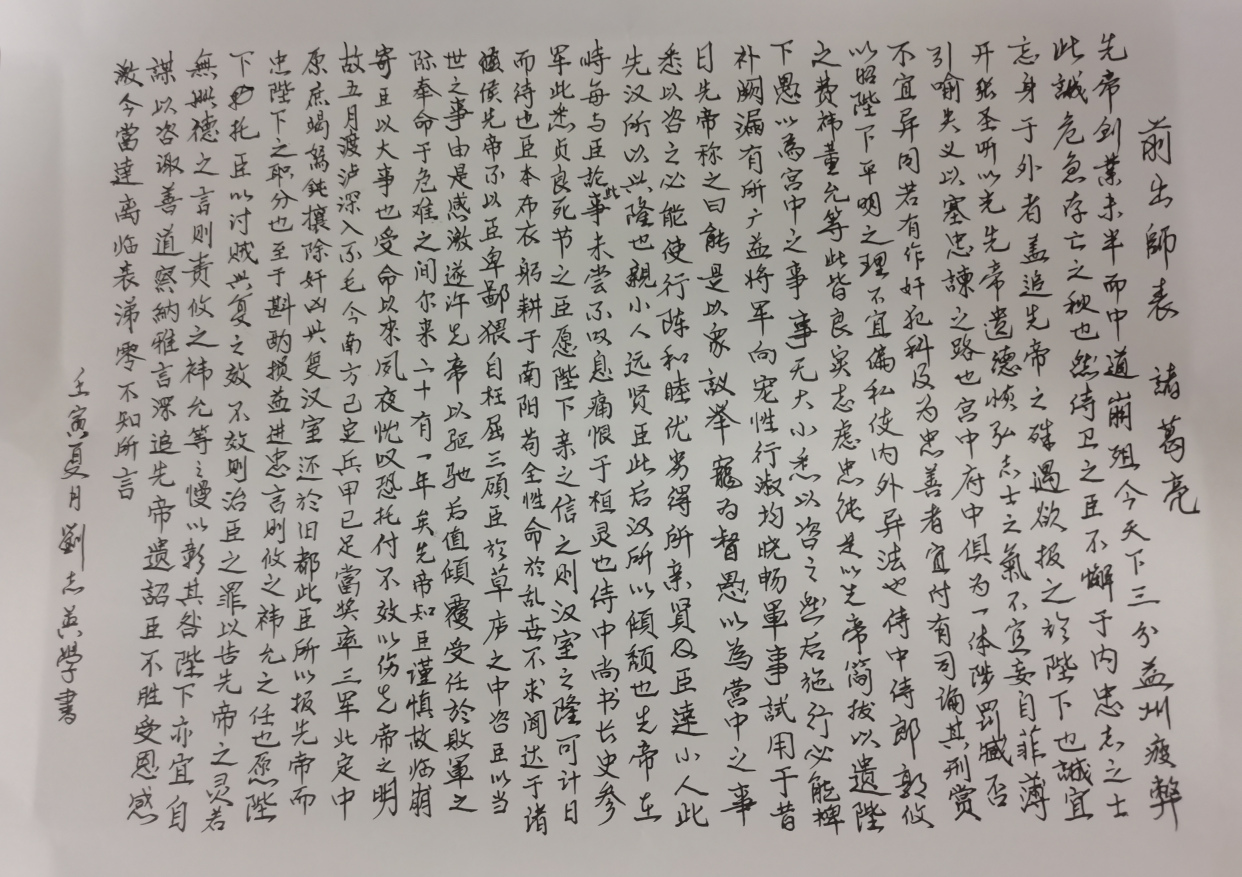 前出師表 諸葛亮
先帝创業未半而中道崩殂今天下三分益州疲弊
此誠危急存亡之秋也然侍卫之臣不懈于内忠志之士
忘身于外者盖追先帝之殊遇欲报之於陛下也誠宜
开张圣听以光先帝遗德恢弘志士之氣不宜妄自菲薄
引喻失义以塞忠諫之路也宫中府中俱为一体陟罰臧否
不宜异同若有作奸犯科及为忠善者宜付有司论其刑赏
以昭陛下平明之理不宜偏私使内外异法也侍中侍郎郭攸
之费祎董允等此皆良实志虑忠纯是以先帝简拔以遗陛
下愚以為宫中之事事无大小悉以咨之然后施行必能裨
补阙漏有所广益将军向宠性行淑均晓畅軍事試用于昔
日先帝称之曰能是以衆议举寵为督愚以為营中之事
悉以咨之必能使行陈和睦优劣得所亲贤臣遠小人此
先汉所以兴隆也親小人远贤臣此后汉所以倾颓也先帝在
時每与臣論此事未尝不叹息痛恨于桓灵也侍中尚书长史参
军此悉贞良死节之臣愿陛下亲之信之则汉室之隆可计日
而待也臣本布衣躬耕于南阳苟全性命於乱世不求闻达于诸
侯先帝不以臣卑鄙猥自枉屈三顾臣於草庐之中咨臣以当
世之事由是感激遂许先帝以驱驰后值傾覆受任於敗軍之
际奉命于危难之间尔来二十有一年矣先帝知臣谨慎故临崩
寄臣以大事也受命以來夙夜忧叹恐托付不效以伤先帝之明
故五月渡泸深入不毛今南方已定兵甲已足當奖率三军北定中
原庶竭駑鈍攘除奸凶兴复汉室还於旧都此臣所以报先帝而
忠陛下之职分也至于斟酌损益进忠言则攸之祎允之任也愿陛
下托臣以讨贼兴复之效不效则治臣之罪以告先帝之灵若
無興德之言则责攸之祎允等之慢以彰其咎陛下亦宜自
謀以咨诹善道察納雅言深追先帝遗詔臣不胜受恩感
激今當遠离临表涕零不知所言
壬寅夏月劉志英學書